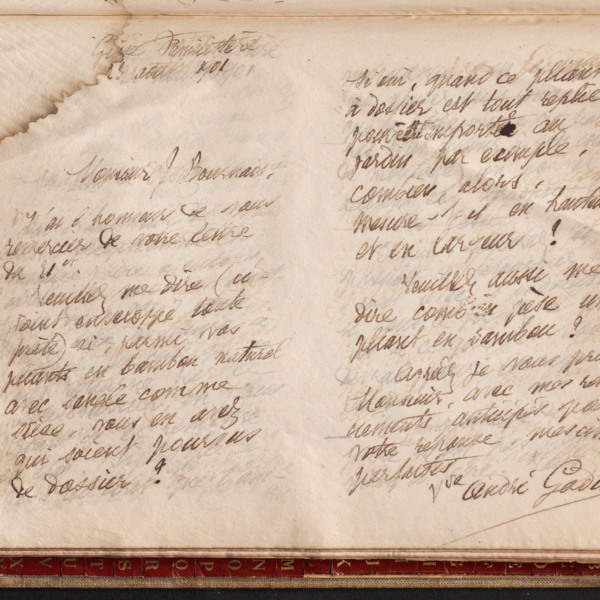 août 1901
Monsieur J. Bournais,
J'ai l'honneur de vous
remercier de votre lettre
du 21 ct.
Veuillez me dire (ci
joint enveloppe toute
prête) si, parmi vos
pliants en bambou naturel
avec sangle comme
siège, vous en avez
qui soient pourvus
de dossier ?
Si oui, quand ce pliant
à dossier est tout replié
pour être emporté au
jardin par exemple,
combien alors,
mesure-t-il en hauteur
et en largeur ?
Veuillez aussi me
dire combien pèse un
pliant en bambou ?
Agréez je vous prie
Monsieur, avec mes remer
ciements anticipés pour
votre réponse, mes
parfaites
Vse André
M N O P Q R S T U V X